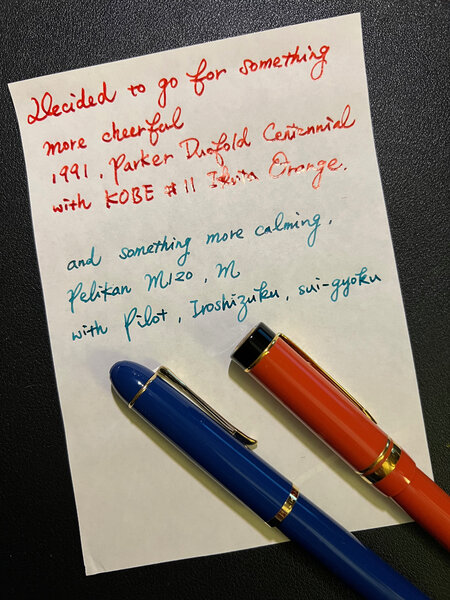 Decided to go for something
more cheerful
1991, Parker Duofold Centennial
with KOBE #11 Ikuta Orange.
and something more calming,
Pelikan M120, M
with Pilot, Iroshizuku, sui-gyoku